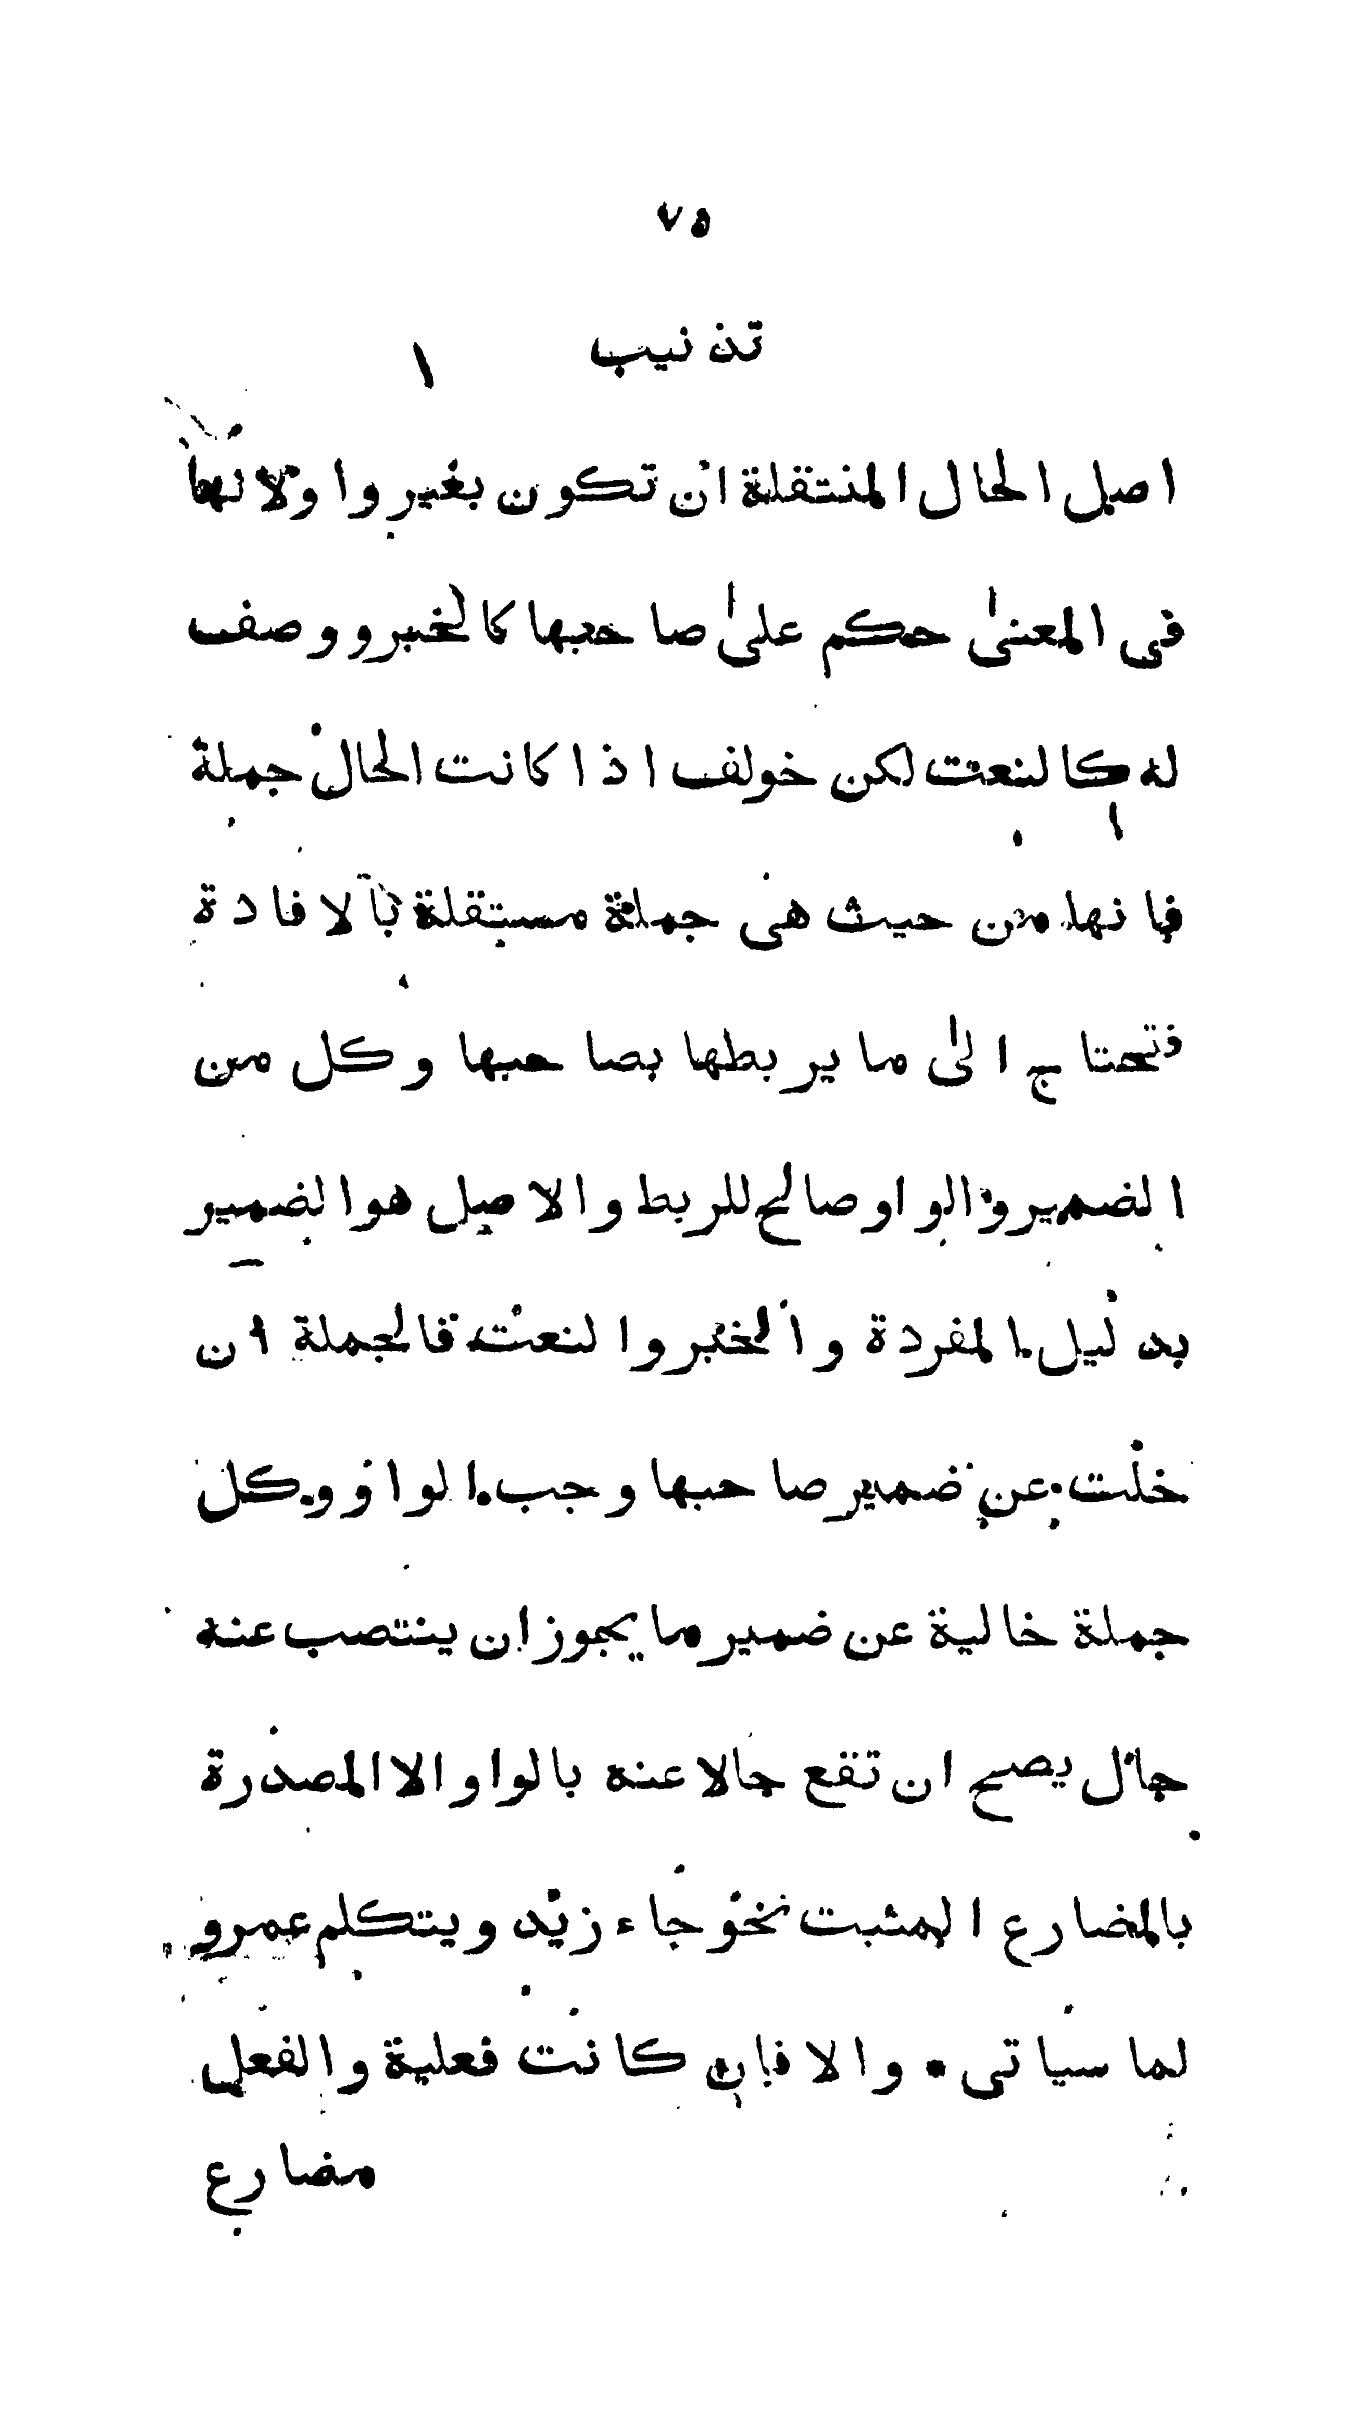 ٧٥
تذنيب
اصل الحال المنتقلة ان تكون بغير واو لانها
فى المعنىٰ حكم علىٰ صاحبها كالخبر ووصف
له كالنعت لكن خولف اذا كانت الحال جملة
فانها من حيث هى جملة مستقلة بالافادة
فتحتاج الىٰ ما يربطها بصاحبها وكل من
الضمير والواو صالح للربط والاصل هو الضمير
بدليل المفردة والخبر والنعت فالجملة ان
خلت عن ضمير صاحبها وجب الواو وكل
جملة خالية عن ضمير ما يجوز ان ينتصب عنه
حال يصح ان تقع حالا عنه بالواو الا المصدرة
بالمضارع المثبت نحو جاء زيد ويتكلم عمرو
لما سياتى • والا فان كانت فعلية والفعل
مضارع